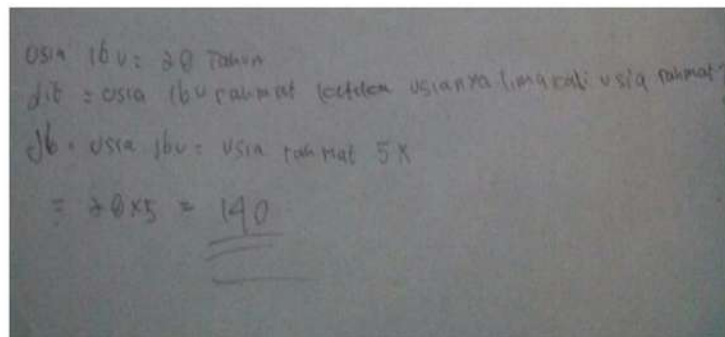 Usia ibu = 28 Tahun
dit = usia ibu rahmat ketika usianya lima kali usia rahmat?
Jb = usia ibu = usia rahmat 5x
= 28x5 = 140